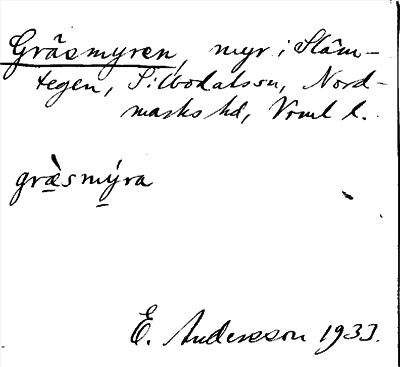 Gräsmyren, myr i Släm-
tegen, Silbodalssn, Nord-
marks hd, Vrml l.
græ̀smýra
E. Andersson 1933.